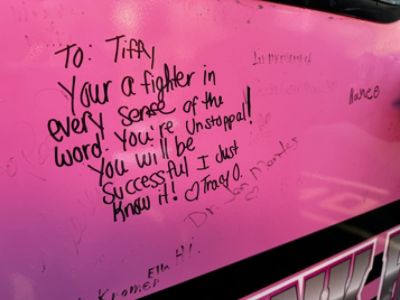 To: Tiffy
Your a fighter in
every sense of the
word. You're Unstoppal!
You will be
Successful I Just
Know it! ♡ Tracy O.
Dr. Jos Morales
Ella Hi.
Kromer